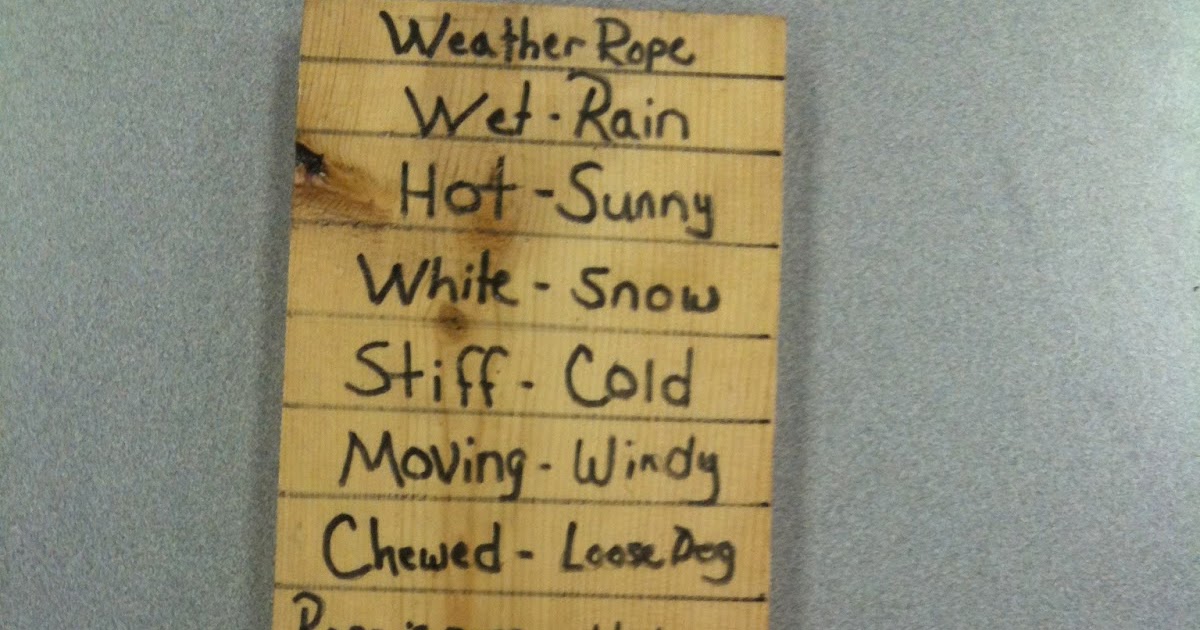 Weather Rope
Wet - Rain
Hot - Sunny
White - Snow
Stiff - Cold
Moving - Windy
Chewed - Loose Dog